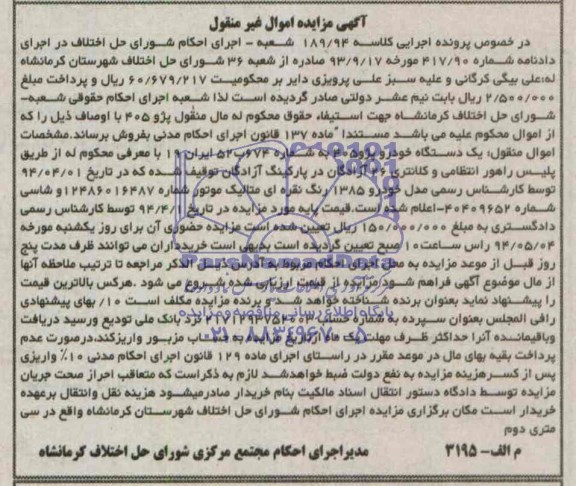 آگهی مزایده اموال غیر منقول
در خصوص پرونده اجرایی کلاسه ۱۸۹/۹۴ شعبه - اجرای احکام شورای حل اختلاف در اجرای
دادنامه شماره ۴۱۷/۹۰ مورخه ۹۳/۹/۱۷ صادره از شعبه ۳۶ شورای حل اختلاف شهرستان کرمانشاه
له:علی بیگی کرگانی و علیه سبز علی پرویزی دایر بر محکومیت ۶۰/۶۷۹/۲۱۷ ریال و پرداخت مبلغ
۲/۵۰۰/۰۰۰ ریال بابت نیم عشر دولتی صادر گردیده است لذا شعبه اجرای احکام حقوقی شعبه-
شورای حل اختلاف کرمانشاه جهت استیفاء حقوق محکوم له مال منقول پژو ۴۰۵ با اوصاف ذیل را که
از اموال محکوم علیه می باشد مستندا "ماده ۱۳۷ قانون اجرای احکام مدنی بفروش برساند.مشخصات
اموال منقول: یک دستگاه خودرو پژو۴۰۵ به شماره ۶۷۴ب۵۲ ایران ۱۹ با معرفی محکوم له از طریق
پلیس راهور انتظامی و کلانتری ۲۶ آزادگان در پارکینگ آزادگان توقیف شده که در تاریخ ۹۴/۰۴/۰۱
توسط کارشناس رسمی مدل خودرو ۱۳۸۵ رنگ نقره ای متالیک موتور شماره ۱۲۴۸۶۰۱۶۴۸۷و شاسی
شماره ۴۰۴۰۹۶۵۲-اعلام شده است.قیمت پایه مورد مزایده در تاریخ ۹۴/۴/۱ توسط کارشناس رسمی
دادگستری به مبلغ ۱۵۰/۰۰۰/۰۰۰ ریال تعیین شده است مزایده حضوری آن برای روز یکشنبه مورخه
۹۴/۰۵/۰۴ راس ساعت۱۰ صبح تعیین گردیده است بدیهی است خریدداران می توانند ظرف مدت پنج
روز قبل از موعد مزایده به محل اجرای احکام مربوط به آدرس ذیل الذکر مراجعه تا ترتیب ملاحظه آنها
از مال موضوع آگهی فراهم شود.مزایده از قیمت ارزیابی شده شروع می شود .هرکس بالاترین قیمت
را پیشنهاد نماید بعنوان برنده شناخته خواهد شد و برنده مزایده مکلف است ۱۰/ بهای پیشنهادی
رافی المجلس بعنوان سپرده به شماره حساب نزد بانک ملی تودیع ورسید دریافت
وباقیمانده آنرا حداکثر ظرف مهلت یک ماه ازتاریخ مزایده به حساب مزبور واریزکند.درصورت عدم
پرداخت بقیه بهای مال در موعد مقرر در راستای اجرای ماده ۱۲۹ قانون اجرای احکام مدنی ۱۰٪ واریزی
پس از کسرهزینه مزایده به نفع دولت ضبط خواهدشد لازم به ذکراست که متعاقب احراز صحت جریان
مزایده توسط دادگاه دستور انتقال اسناد مالکیت بنام خریدار صادرمیشود هزینه نقل وانتقال برعهده
خریدار است مکان برگزاری مزایده اجرای احکام شورای حل اختلاف شهرستان کرمانشاه واقع در سی
متری دوم
م الف- ۳۱۹۵ مدیراجرای احکام مجتمع مرکزی شورای حل اختلاف کرمانشاه
ParsNamadData
پایگاه اطلاع رسانی مناقصه و مزایده
۰۲۱-۸۸۳۴۹۶۷۰-۵